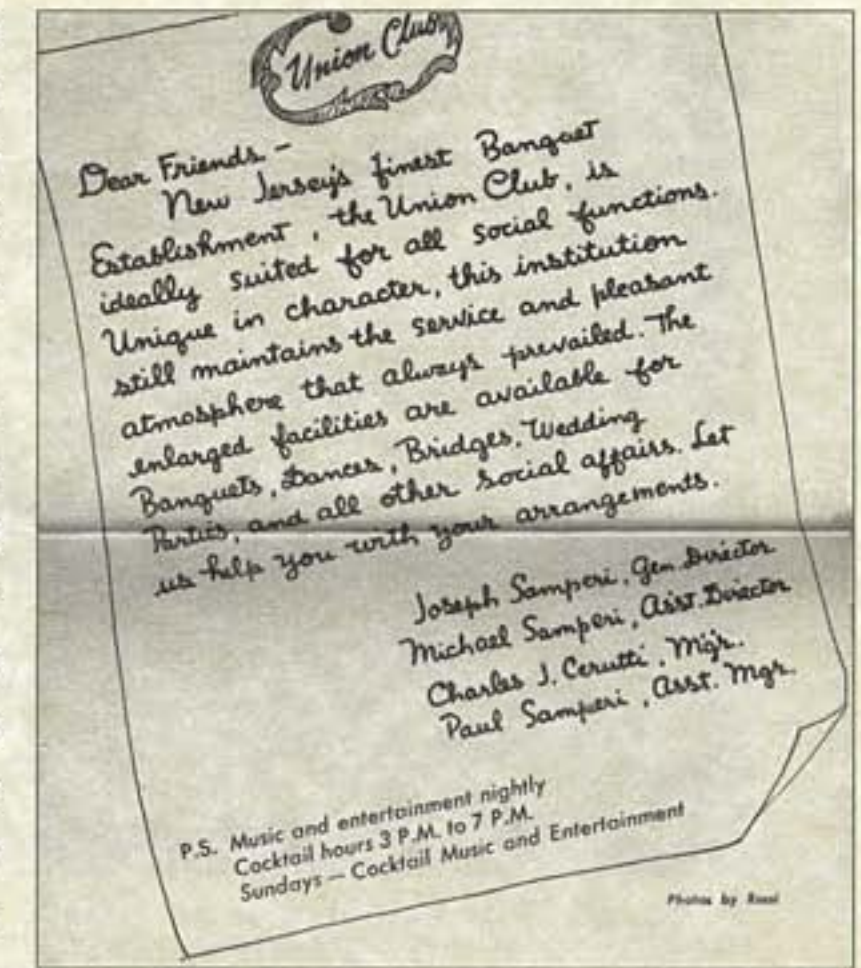 Union Club
Dear Friends -
New Jersey's finest Banquet
Establishment, the Union Club, is
ideally suited for all social functions.
Unique in character, this institution
still maintains the service and pleasant
atmosphere that always prevailed. The
enlarged facilities are available for
Banquets, Dances, Bridges, Wedding
Parties, and all other social affairs. Let
us help you with your arrangements.
Joseph Samperi, Gen. Director
Michael Samperi, Ass't. Director
Charles J. Cerutti, Mgr.
Paul Samperi, Asst. Mgr.
P.S. Music and entertainment nightly
Cocktail hours 3 P.M. to 7 P.M.
Sundays — Cocktail Music and Entertainment
Photos by